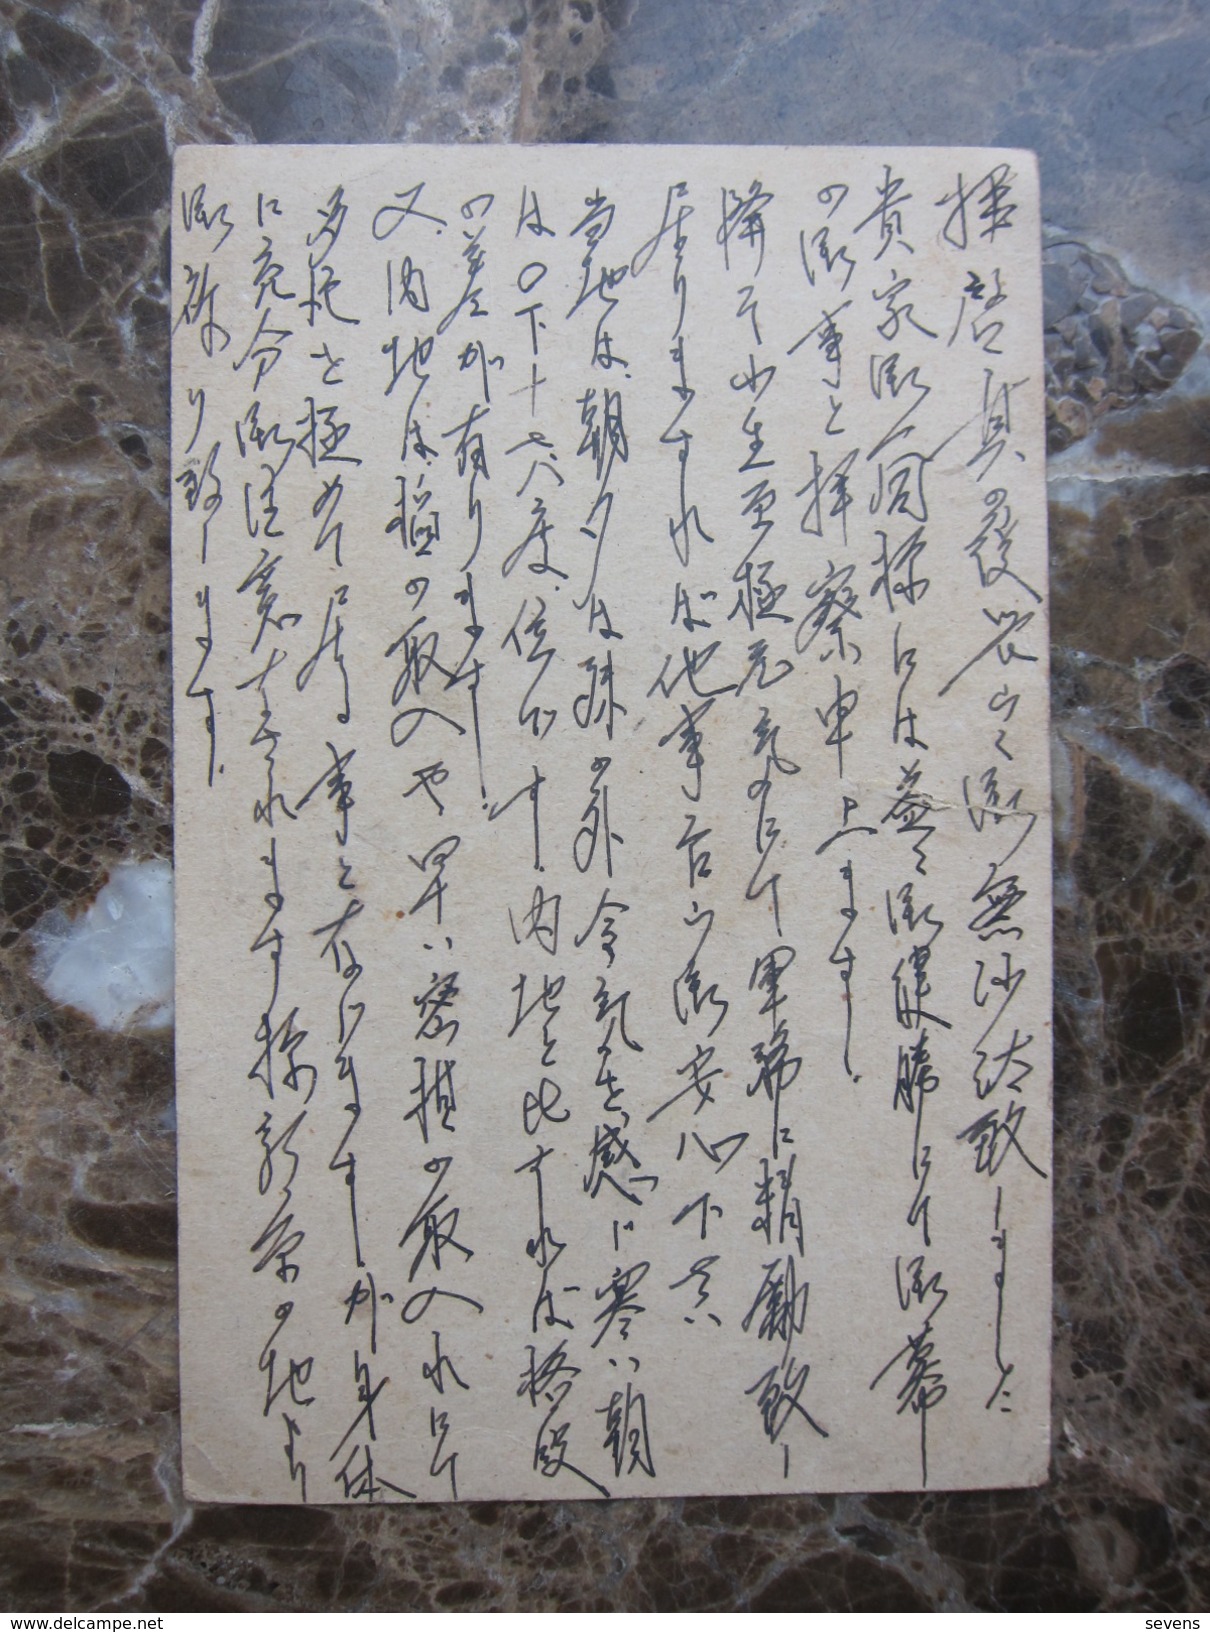 拝啓其の後大変御無沙汰致しました
貴家御一同様には益々御健勝にて御暮
の御事と拝察申上ます。
降て小生至極元気にて軍務に精励致し
居りますれば他事乍ら御安心下さい
当地は、朝夕は殊の外冷気を感じ寒い朝
は〇下十七八度、位です。内地と比すれば格段
の差が有ります。
又、内地は、稲の取入や早い蜜柑の取入れにて
多忙を極めて居る事と存じますが身体
に充分御注意下されます様新京の地より
御祈り致します。
delcampe.net
sevens